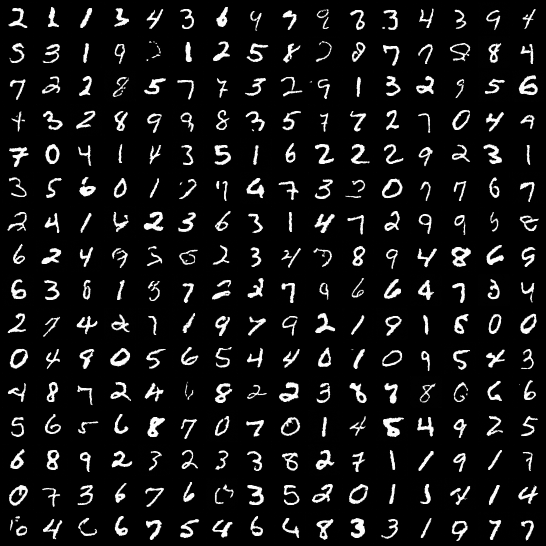 2 1 1 3 4 3 6 9 7 9 8 3 4 3 9 4
5 3 1 9 1 2 5 8 8 7 7 8 8 4
7 2 2 8 5 7 7 3 2 9 1 3 2 9 5 6
4 3 2 8 9 9 8 3 5 7 7 2 7 0 4 9
7 0 4 1 4 3 5 1 6 2 2 2 9 2 3 1
3 5 6 0 1 7 9 7 3 2 0 7 7 6 7
2 4 1 4 2 3 6 3 1 4 7 2 9 9 8
6 2 4 9 5 5 2 3 4 7 8 9 4 8 6 9
6 3 8 1 8 7 2 2 7 9 6 6 4 7 3 4
2 7 4 2 7 1 9 7 9 2 1 9 1 8 0 0
0 4 9 0 5 6 5 4 4 0 1 0 9 5 4 3
4 8 7 2 4 6 8 2 2 3 8 7 8 6 6 6
5 6 5 6 8 7 0 7 0 1 4 8 4 9 2 5
6 8 9 2 3 2 3 3 8 2 7 1 1 9 1 7
0 7 3 6 7 6 0 3 5 2 0 1 4 1 4
4 6 7 5 4 6 4 8 3 3 1 9 7 7